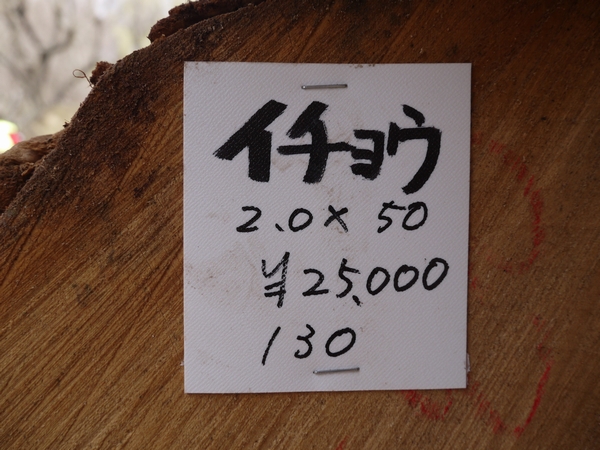 イチョウ
2.0× 50
¥25,000
130